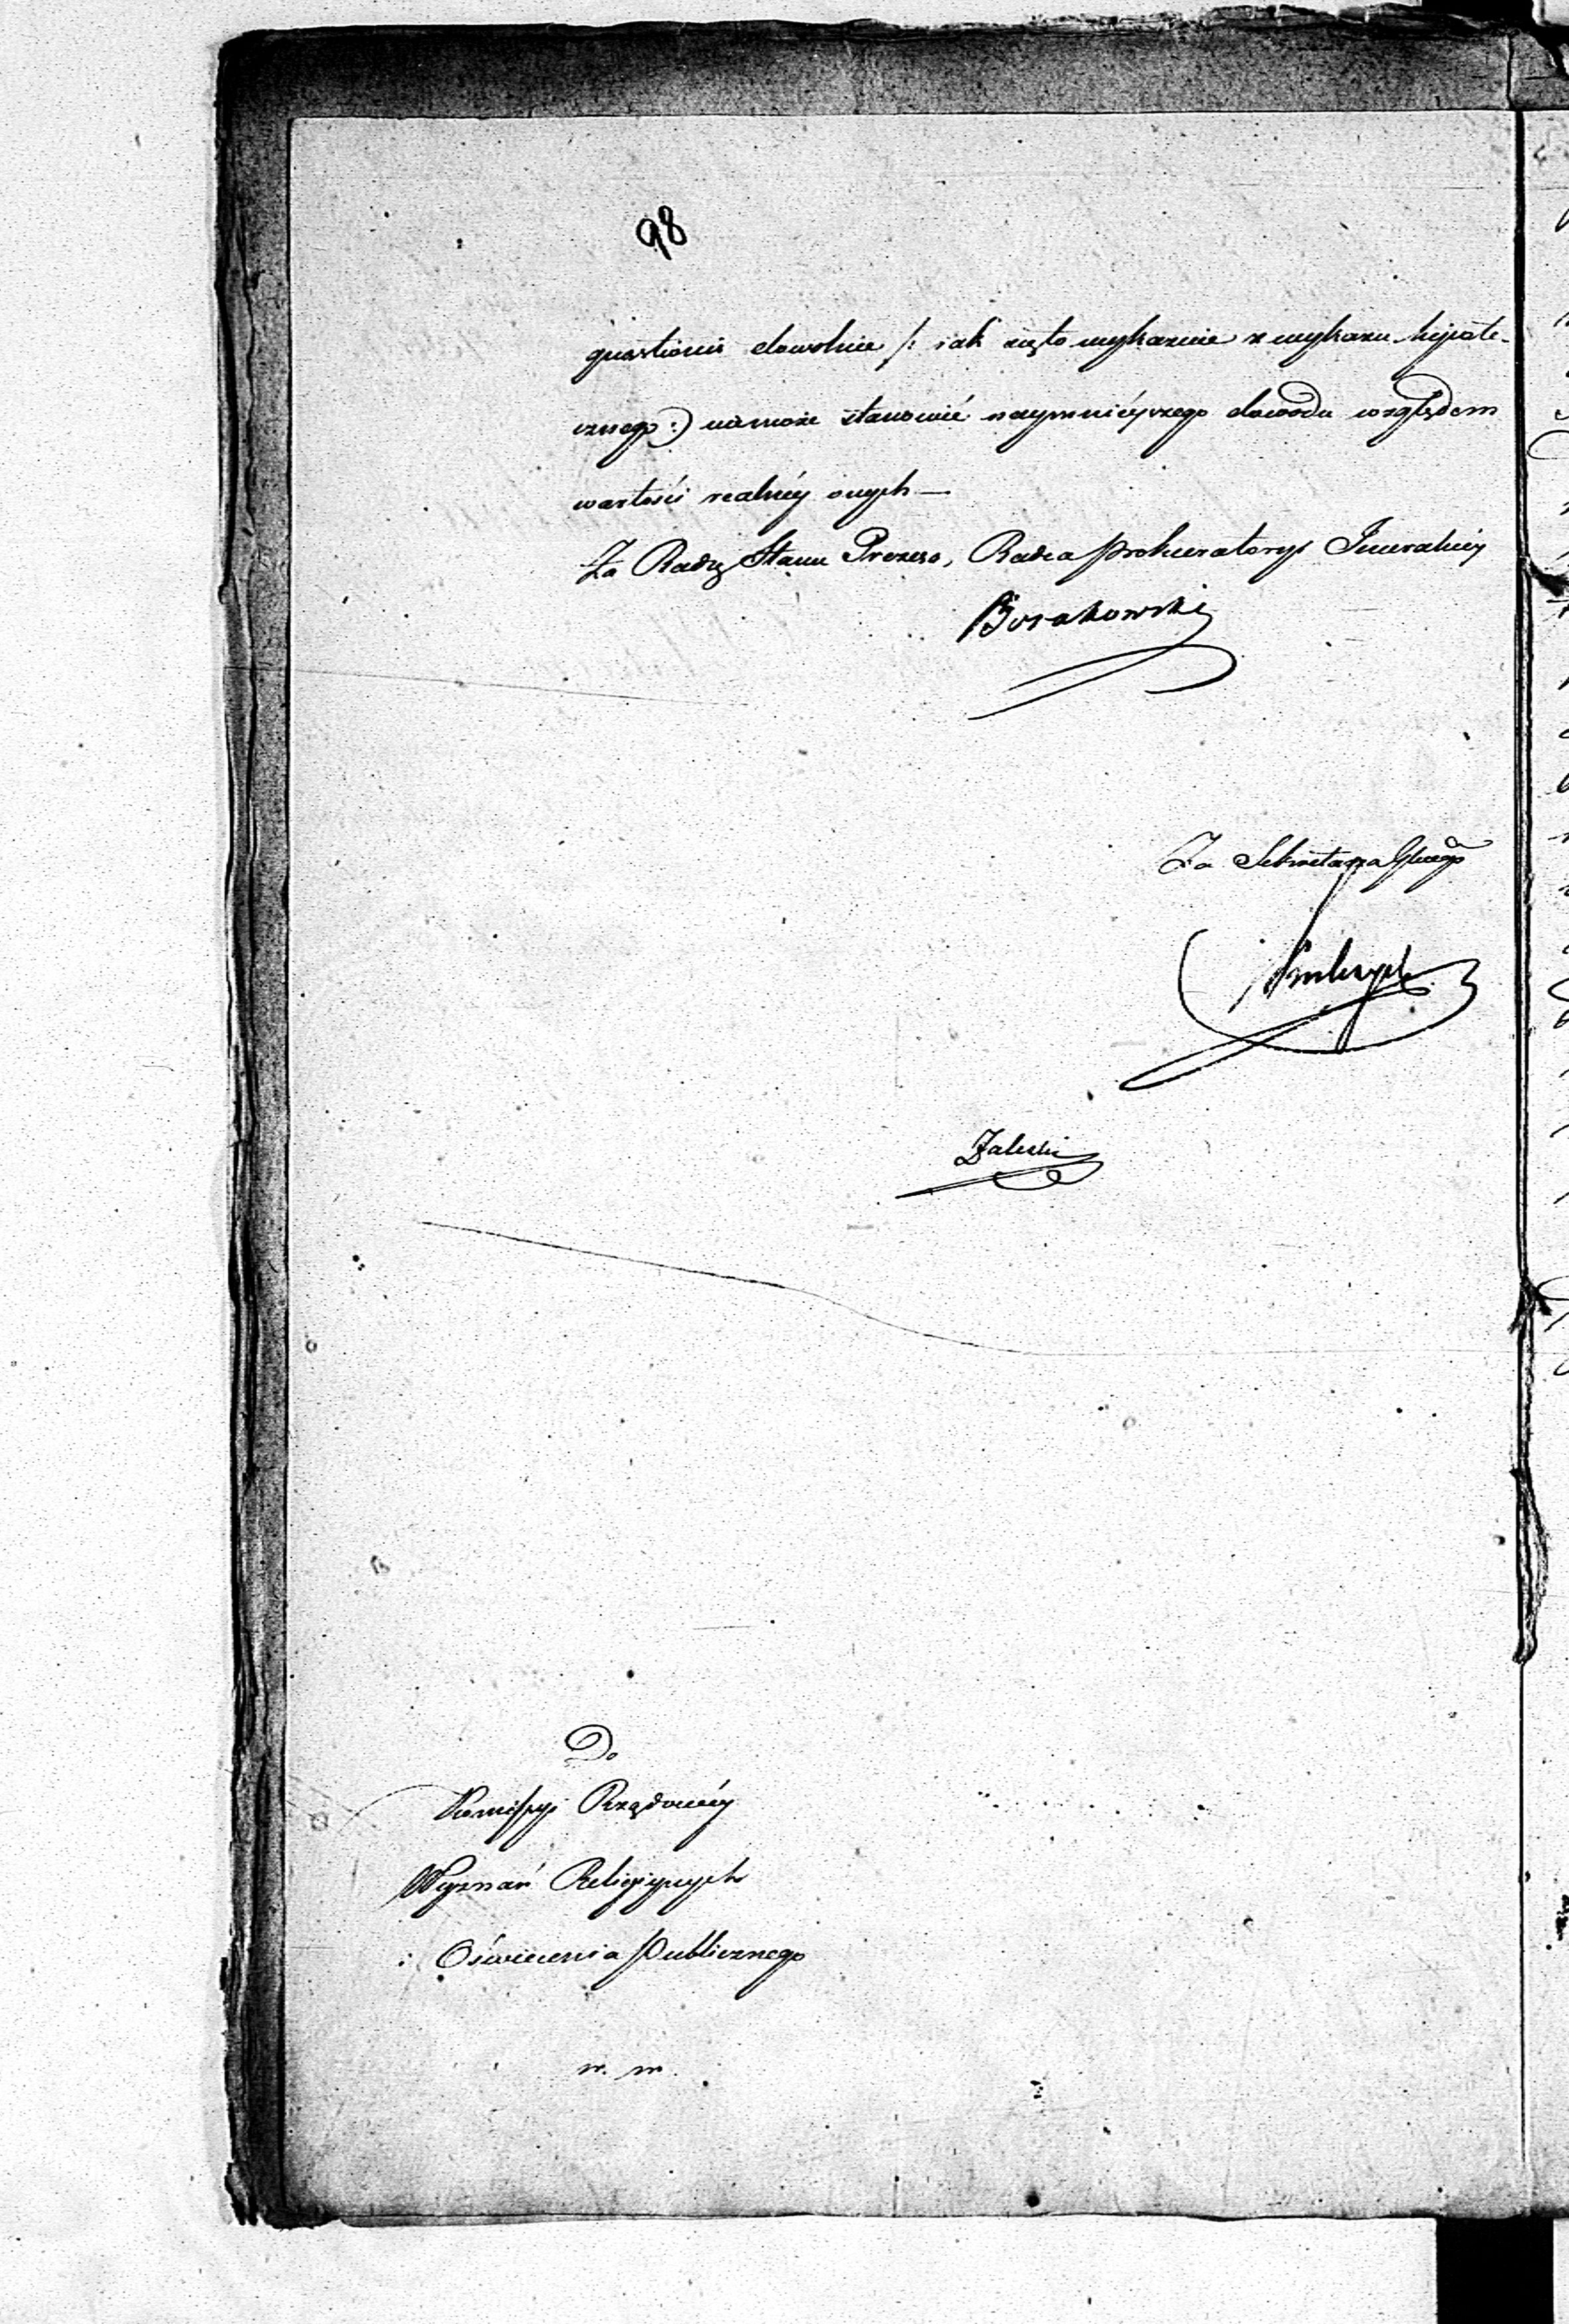 98
quaestionis dowolnie /: iak się to wykazuie z wykazu hypote-
cznego :/ niemoże stanowić naymnieyszego dowodu względem
wartości realney onych —
Za Radcę Stanu Prezesa, Radca Prokuratoryi Jeneralney
Borakowski
Za Sekretarza Głnego
Zaleski
Do
Kommissyi Rządowéy
Wyznań Religiynych
i Oświecenia Publicznego
w. m.